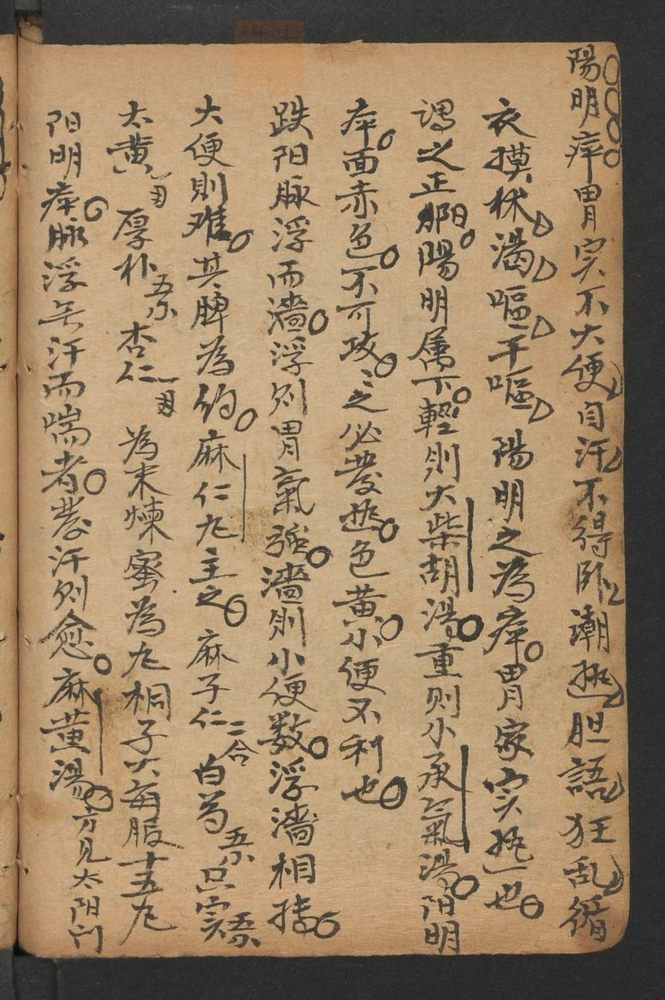 陽明病胃实不大便自汗不得卧潮热胆語狂乱循
衣摸牀渴嘔干嘔陽明之為病胃家实热也
謂之正陽陽明属下輕則大柴胡湯重则小承氣湯阳明
病面赤色不可攻之必發热色黄小便不利也
趺阳脉浮而濇浮则胃氣强濇則小便数浮濇相搏
大便則难其脾為约麻仁丸主之麻子仁二合白芍五小只实五小
大黄一両厚朴五小杏仁一両為末煉蜜為丸桐子大每服十五丸
阳明病脉浮无汗而喘者發汗则愈麻黄湯方見太阳门